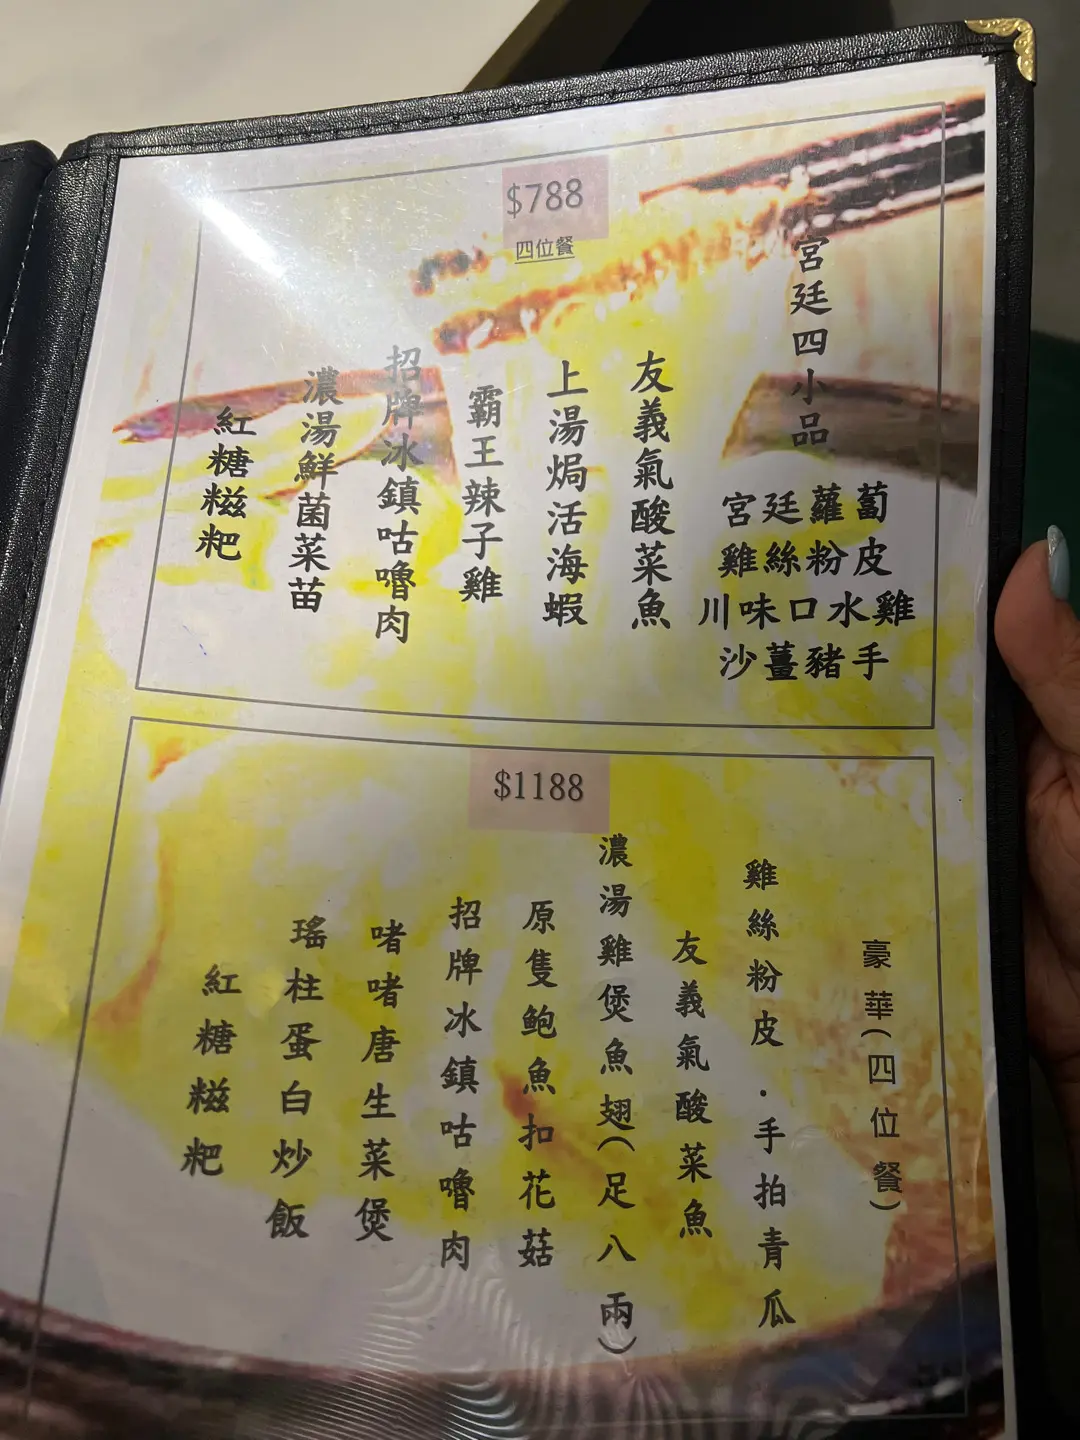 $788
四位餐
宮廷四小品
宮廷蘿蔔
雞絲粉皮
川味口水雞
沙薑豬手
友義氣酸菜魚
上湯焗活海蝦
霸王辣子雞
招牌冰鎮咕嚕肉
濃湯鮮菌菜苗
紅糖糍粑
$1188
豪華(四位餐)
雞絲粉皮．手拍青瓜
友義氣酸菜魚
濃湯雞煲魚翅(足八兩)
原隻鮑魚扣花菇
招牌冰鎮咕嚕肉
啫啫唐生菜煲
瑤柱蛋白炒飯
紅糖糍粑